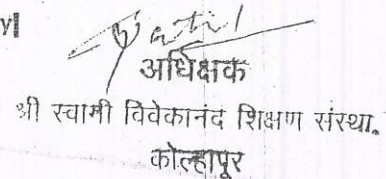 Patil
अधिक्षक
श्री स्वामी विवेकानंद शिक्षण संस्था.
कोल्हापूर